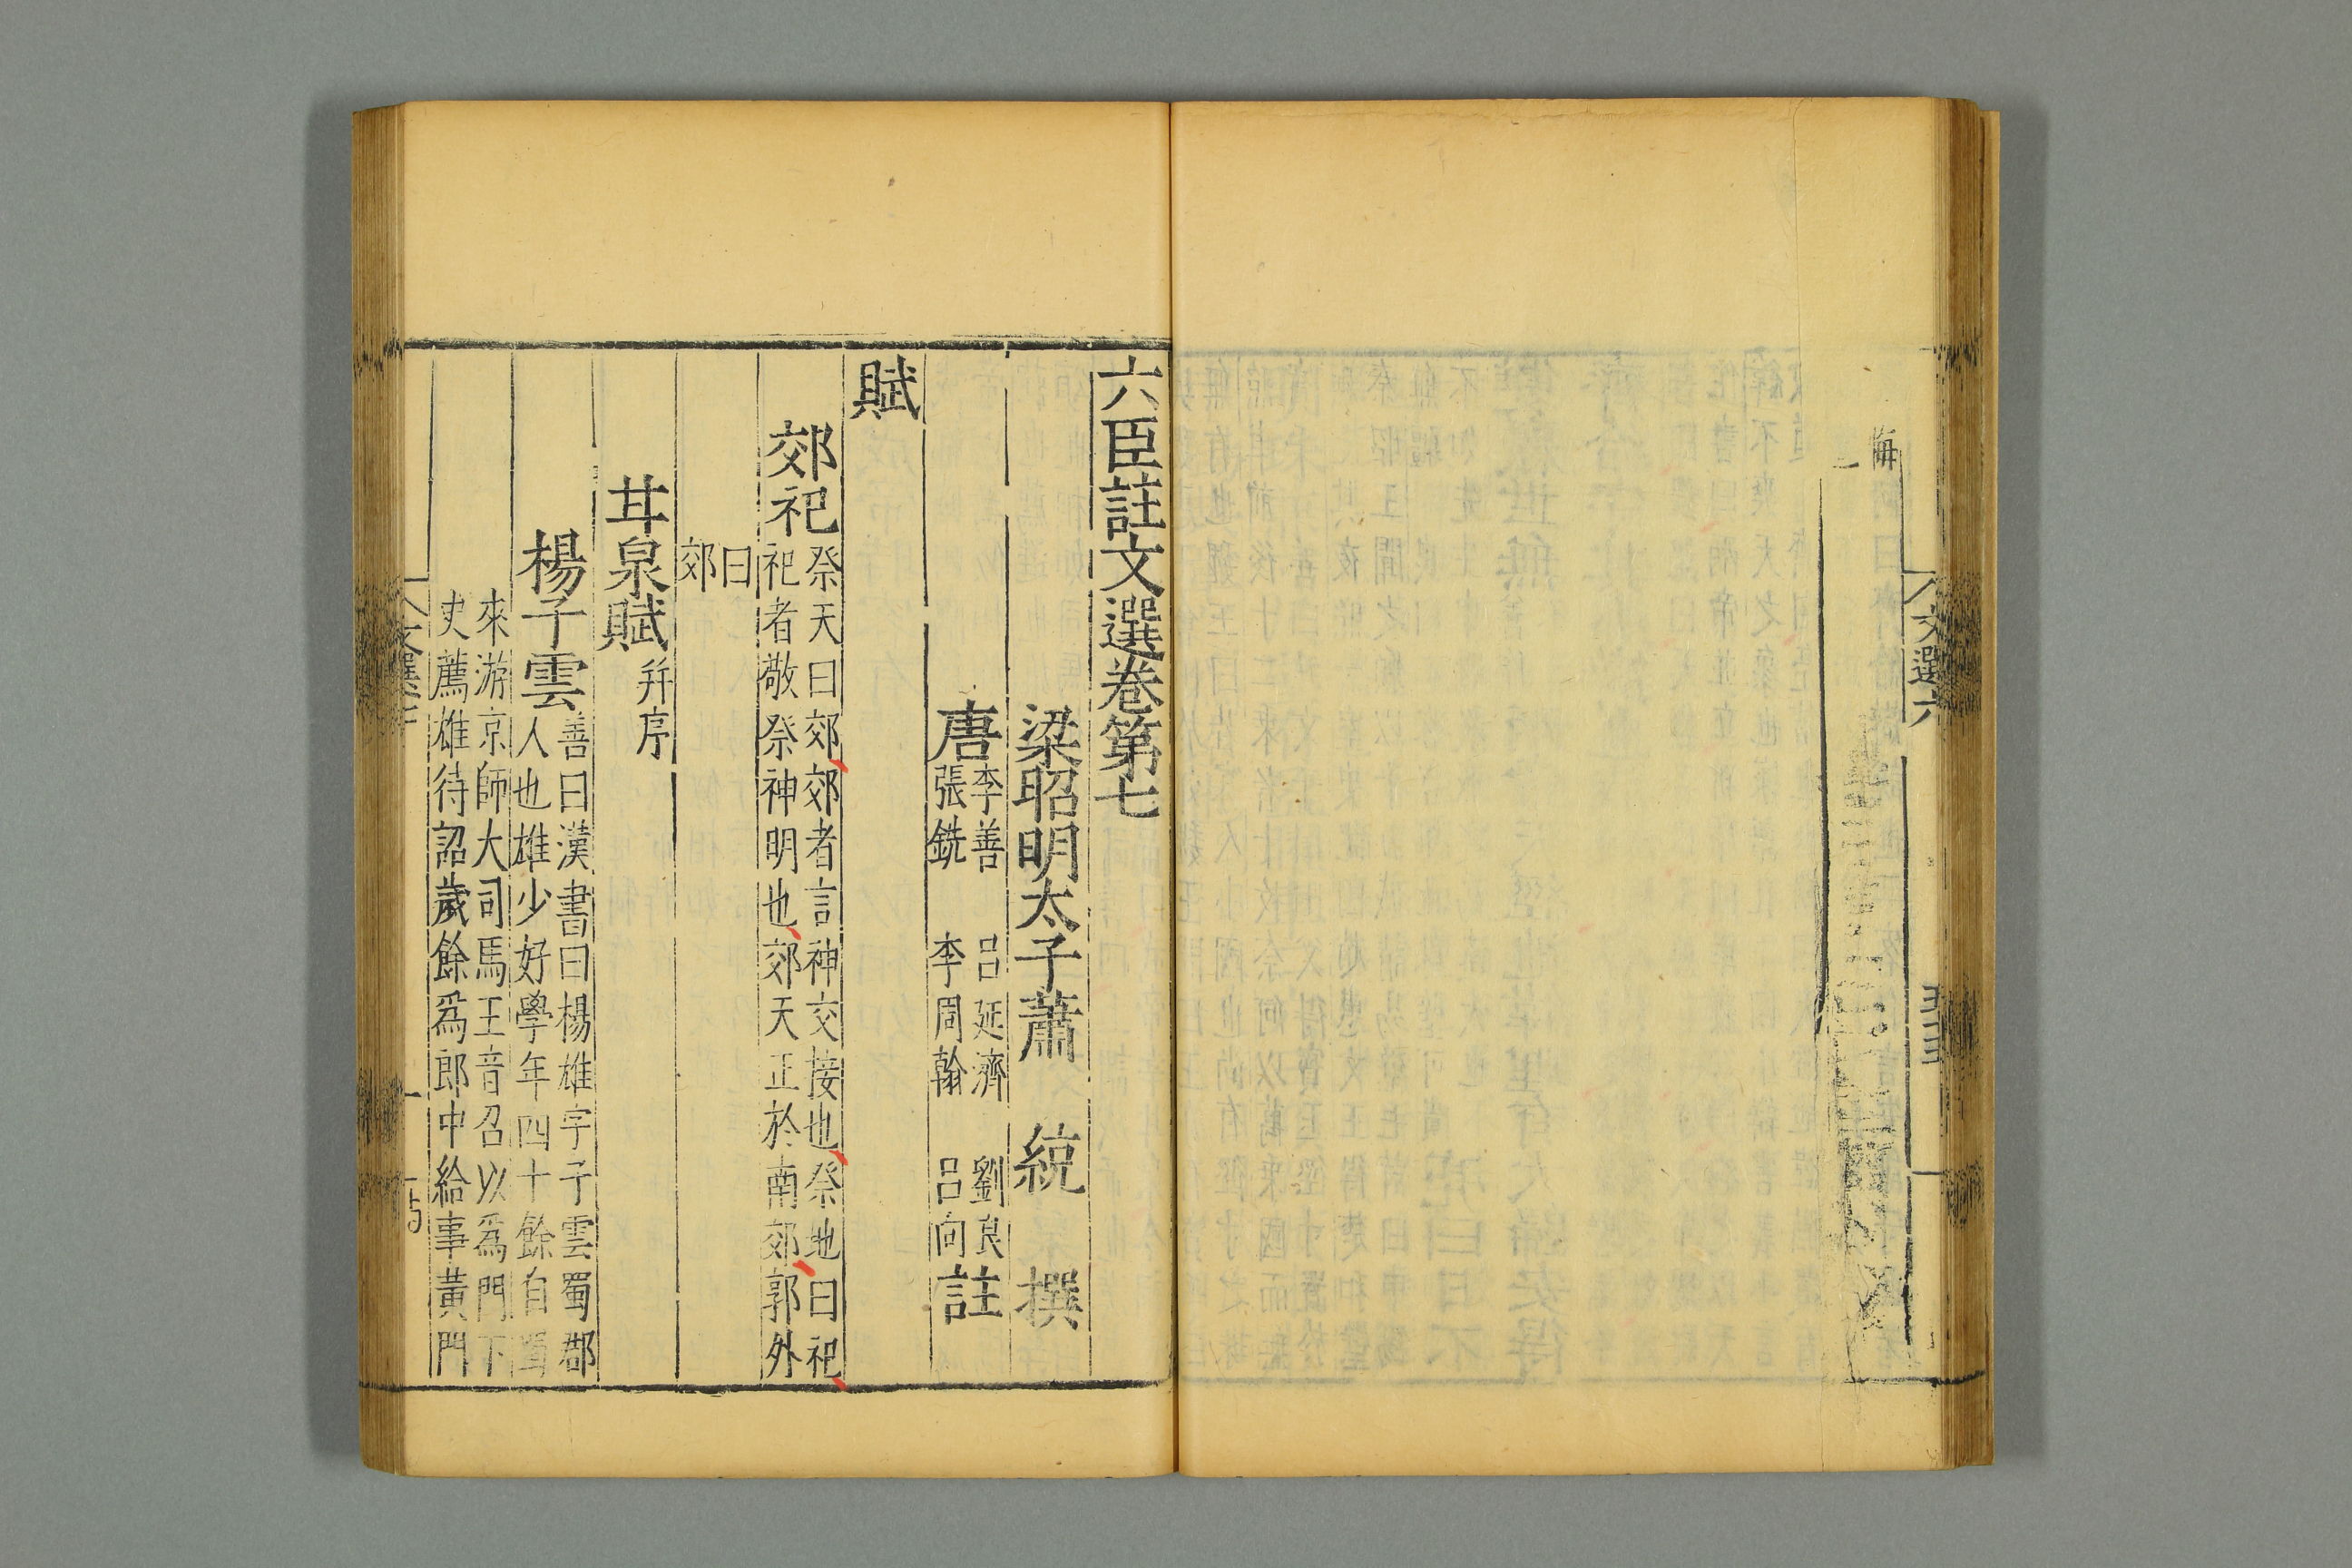 海
二
文選六
六臣註文選卷第七
梁昭明太子蕭　統　撰
唐
李善　呂延濟　劉良
張銑　李周翰　呂向
註
賦
郊祀
祭天曰郊郊者言神交接也祭地曰祀
祀者敬祭神明也郊天正於南郊郭外
曰
郊
甘泉賦
并序
楊子雲
善曰漢書曰楊雄字子雲蜀郡
人也雄少好學年四十餘自蜀
來游京師大司馬王音召以為門下
史薦雄待詔歲餘為郎中給事黃門